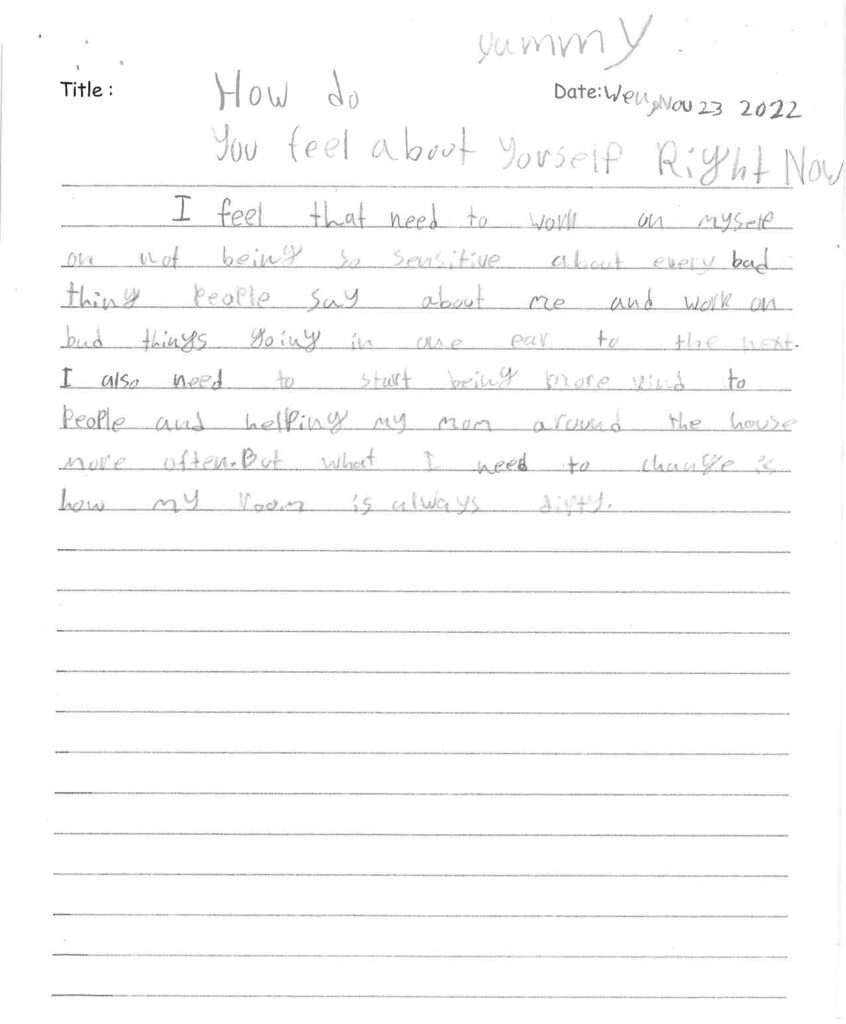 yummy
Title: How do Date:Wen,Nov 23 2022
You feel about yourself Right Now
I feel that need to work on myself
on not being so sensitive about every bad
thing people say about me and work on
bad things going in one ear to the next.
I also need to start being more kind to
people and helping my mom around the house
more often. But what I need to change is
how my room is always dirty.